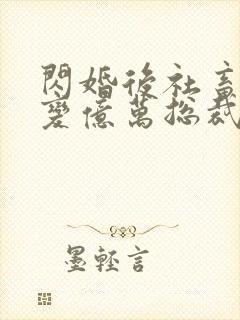 閃婚後社畜
變億萬總裁
墨輕言